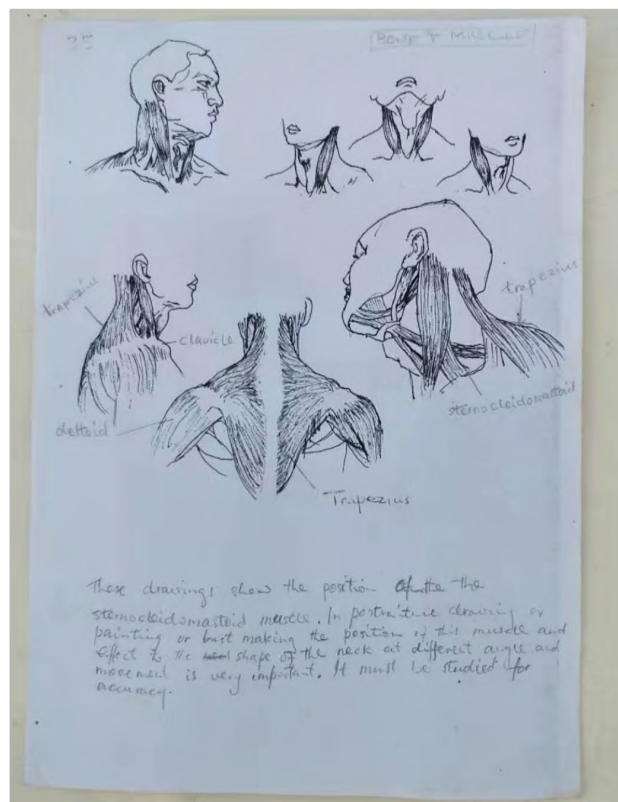 35
BONE & MUSCLE
trapezius
trapezius
clavicle
sternocleidomastoid
deltoid
Trapezius
These drawings show the position of the the
sternocleidomastoid muscle. In portraiture drawing or
painting or bust making the position of this muscle and
effect to the shape of the neck at different angle and
movement is very important. It must be studied for
accuracy.